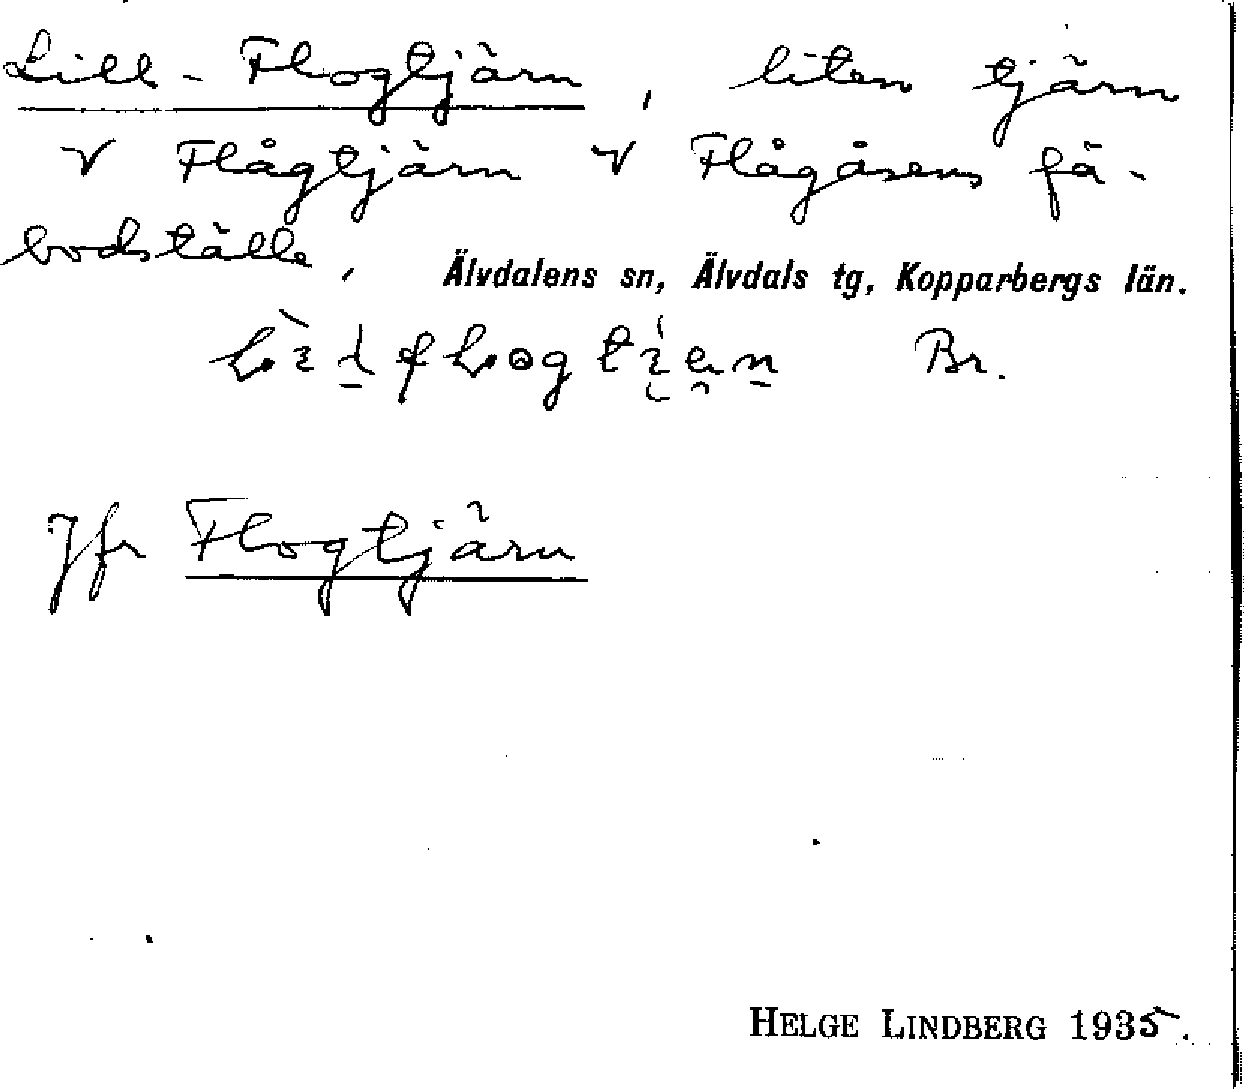 Lill-Flogtjärn, liten tjärn
V Flågtjärn V Flågåsens fä-
bodställe,
Älvdalens sn, Älvdals tg, Kopparbergs län.
Br.
Jfr Flogtjärn
HELGE LINDBERG 1935.